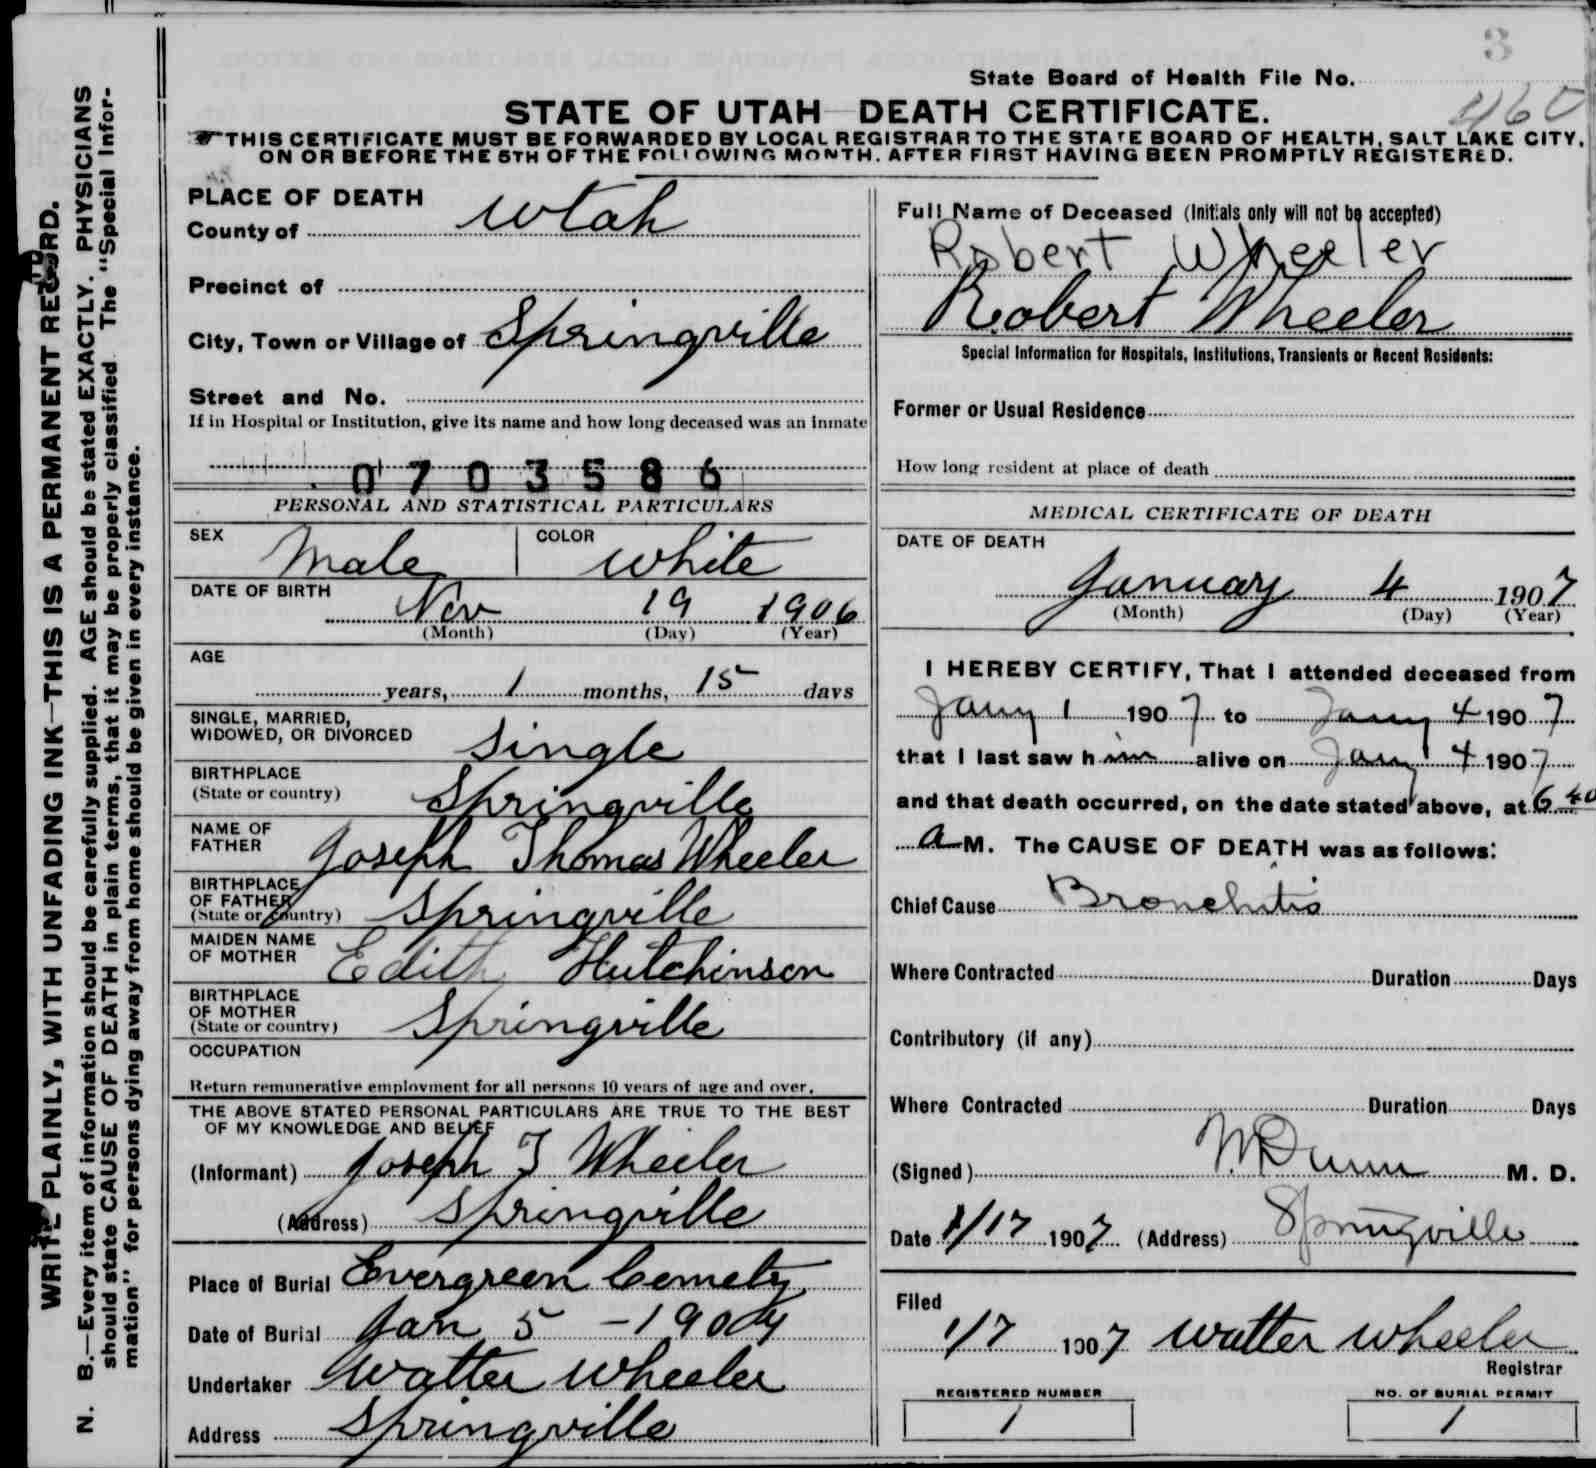 3
State Board of Health File No.
460
STATE OF UTAH—DEATH CERTIFICATE.
THIS CERTIFICATE MUST BE FORWARDED BY LOCAL REGISTRAR TO THE STATE BOARD OF HEALTH, SALT LAKE CITY,
ON OR BEFORE THE 5TH OF THE FOLLOWING MONTH, AFTER FIRST HAVING BEEN PROMPTLY REGISTERED.
WRITE PLAINLY, WITH UNFADING INK—THIS IS A PERMANENT RECORD.
N. B.—Every item of information should be carefully supplied. AGE should be stated EXACTLY. PHYSICIANS
should state CAUSE OF DEATH in plain terms, that it may be properly classified The "Special Infor-
mation" for persons dying away from home should be given in every instance.
PLACE OF DEATH
County of Utah
Precinct of
City, Town or Village of Springville
Street and No.
If in Hospital or Institution, give its name and how long deceased was an inmate
0703586
PERSONAL AND STATISTICAL PARTICULARS
SEX Male COLOR white
DATE OF BIRTH Nov 19 1906
(Month) (Day) (Year)
AGE
years, 1 months, 15 days
SINGLE, MARRIED,
WIDOWED, OR DIVORCED Single
BIRTHPLACE
(State or country) Springville
NAME OF
FATHER Joseph Thomas Wheeler
BIRTHPLACE
OF FATHER
(State or country) Springville
MAIDEN NAME
OF MOTHER Edith Hutchinson
BIRTHPLACE
OF MOTHER
(State or country) Springville
OCCUPATION
Return remunerative employment for all persons 10 years of age and over.
THE ABOVE STATED PERSONAL PARTICULARS ARE TRUE TO THE BEST
OF MY KNOWLEDGE AND BELIEF
(Informant) Joseph T Wheeler
(Address) Springville
Place of Burial Evergreen Cemety
Date of Burial Jan 5 - 1907
Undertaker Walter Wheeler
Address Springville
Full Name of Deceased (Initials only will not be accepted)
Robert Wheeler
Robert Wheeler
Special Information for Hospitals, Institutions, Transients or Recent Residents:
Former or Usual Residence
How long resident at place of death
MEDICAL CERTIFICATE OF DEATH
DATE OF DEATH
January 4 1907
(Month) (Day) (Year)
I HEREBY CERTIFY, That I attended deceased from
Jany 1 1907 to Jany 4 1907
that I last saw him alive on Jany 4 1907
and that death occurred, on the date stated above, at 6 40
a M. The CAUSE OF DEATH was as follows:
Chief Cause Bronchitis
Where Contracted Duration Days
Contributory (if any)
Where Contracted Duration Days
(Signed) Dunn M. D.
Date 1/17 1907 (Address) Springville
Filed
1/7 1907 Walter Wheeler
Registrar
REGISTERED NUMBER
1
NO. OF BURIAL PERMIT
1